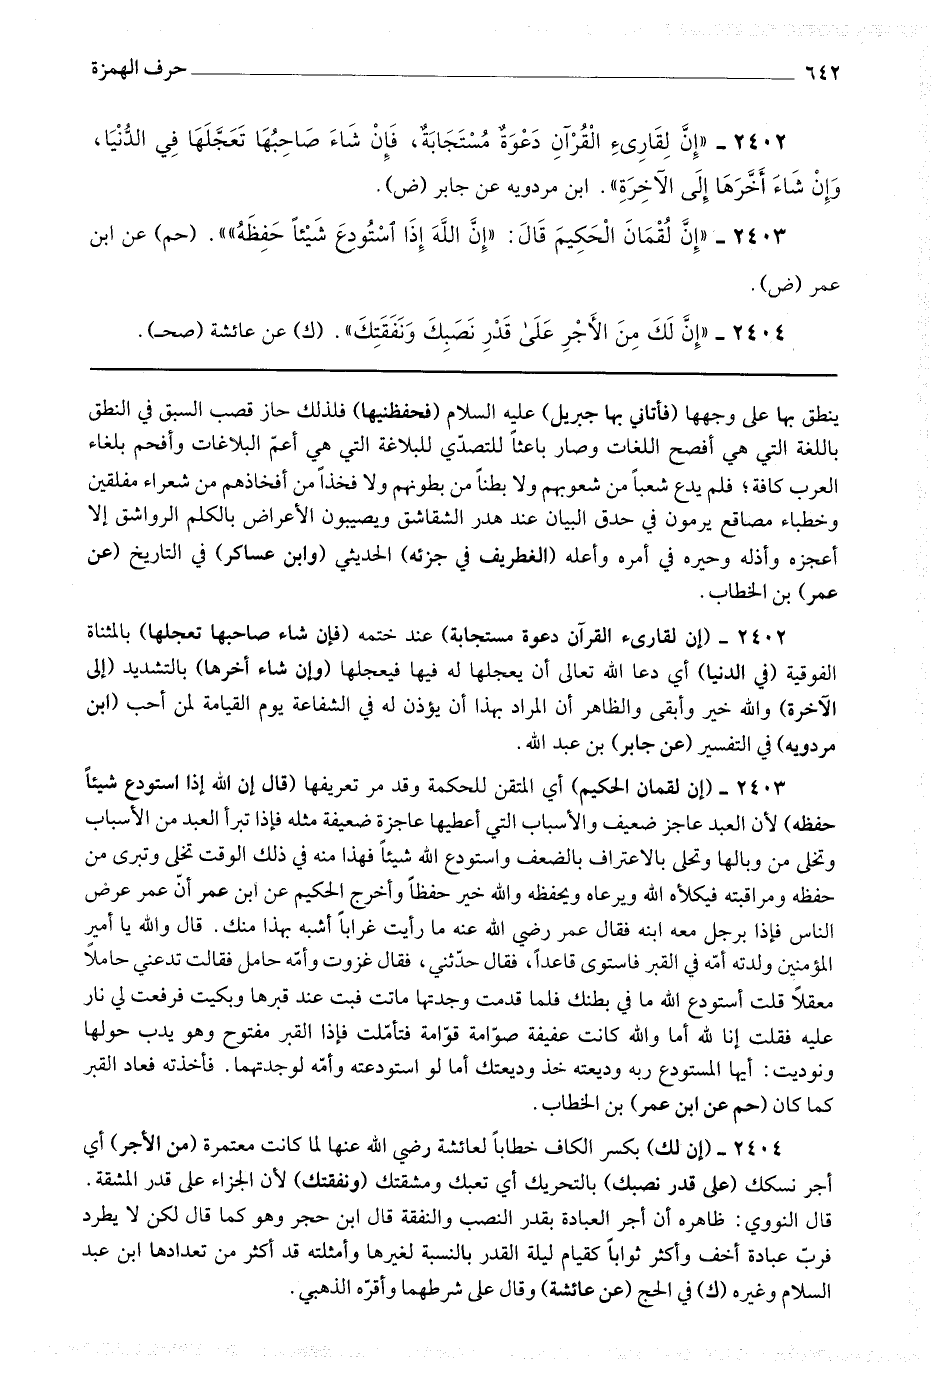 ٦٤٢ حرف الهمزة
٢٤٠٢ ـ «إِنَّ لِقَارِىءِ الْقُرْآنِ دَعْوَةً مُسْتَجَابَةً، فَإِنْ شَاءَ صَاحِبُهَا تَعَجَّلَهَا فِي الدُّنْيَا،
وَإِنْ شَاءَ أَخَّرَهَا إِلَى الآخِرَةِ». ابن مردويه عن جابر (ض).
٢٤٠٣ ـ «إِنَّ لُقْمَانَ الْحَكِيمَ قَالَ: «إِنَّ اللَّهَ إِذَا ٱسْتُودِعَ شَيْئاً حَفِظَهُ»». (حم) عن ابن
عمر (ض).
٢٤٠٤ ـ «إِنَّ لَكَ مِنَ الأَجْرِ عَلَىٰ قَدْرِ نَصَبِكَ وَنَفَقَتِكَ». (ك) عن عائشة (صحـ).
ينطق بها على وجهها (فأتاني بها جبريل) عليه السلام (فحفظنيها) فلذلك حاز قصب السبق في النطق
باللغة التي هي أفصح اللغات وصار باعثاً للتصدّي للبلاغة التي هي أعمّ البلاغات وأفحم بلغاء
العرب كافة؛ فلم يدع شعباً من شعوبهم ولا بطناً من بطونهم ولا فخذاً من أفخاذهم من شعراء مفلقين
وخطباء مصاقع يرمون في حدق البيان عند هدر الشقاشق ويصيبون الأعراض بالكلم الرواشق إلا
أعجزه وأذله وحيره في أمره وأعله (الغطريف في جزئه) الحديثي (وابن عساكر) في التاريخ (عن
عمر) بن الخطاب.
٢٤٠٢ ـ (إن لقارىء القرآن دعوة مستجابة) عند ختمه (فإن شاء صاحبها تعجلها) بالمثناة
الفوقية (في الدنيا) أي دعا الله تعالى أن يعجلها له فيها فيعجلها (وإن شاء أخرها) بالتشديد (إلى
الآخرة) والله خير وأبقى والظاهر أن المراد بهذا أن يؤذن له في الشفاعة يوم القيامة لمن أحب (ابن
مردويه) في التفسير (عن جابر) بن عبد الله.
٢٤٠٣ ـ (إن لقمان الحكيم) أي المتقن للحكمة وقد مر تعريفها (قال إن الله إذا استودع شيئاً
حفظه) لأن العبد عاجز ضعيف والأسباب التي أعطيها عاجزة ضعيفة مثله فإذا تبرأ العبد من الأسباب
وتخلى من وبالها وتحلى بالاعتراف بالضعف واستودع الله شيئاً فهذا منه في ذلك الوقت تخلى وتبرى من
حفظه ومراقبته فيكلأه الله ويرعاه ويحفظه والله خير حفظاً وأخرج الحكيم عن ابن عمر أنّ عمر عرض
الناس فإذا برجل معه ابنه فقال عمر رضي الله عنه ما رأيت غراباً أشبه بهذا منك. قال والله يا أمير
المؤمنين ولدته أمّه في القبر فاستوى قاعداً، فقال حدّثني، فقال غزوت وأمّه حامل فقالت تدعني حاملاً
معقلاً قلت أستودع الله ما في بطنك فلما قدمت وجدتها ماتت فبت عند قبرها وبكيت فرفعت لي نار
عليه فقلت إنا لله أما والله كانت عفيفة صوّامة قوّامة فتأملت فإذا القبر مفتوح وهو يدب حولها
ونوديت: أيها المستودع ربه وديعته خذ وديعتك أما لو استودعته وأمّه لوجدتهما. فأخذته فعاد القبر
كما كان (حم عن ابن عمر) بن الخطاب.
٢٤٠٤ ـ (إن لك) بكسر الكاف خطاباً لعائشة رضي الله عنها لما كانت معتمرة (من الأجر) أي
أجر نسكك (على قدر نصبك) بالتحريك أي تعبك ومشقتك (ونفقتك) لأن الجزاء على قدر المشقة.
قال النووي: ظاهره أن أجر العبادة بقدر النصب والنفقة قال ابن حجر وهو كما قال لكن لا يطرد
فربّ عبادة أخف وأكثر ثواباً كقيام ليلة القدر بالنسبة لغيرها وأمثلته قد أكثر من تعدادها ابن عبد
السلام وغيره (ك) في الحج (عن عائشة) وقال على شرطهما وأقرّه الذهبي.